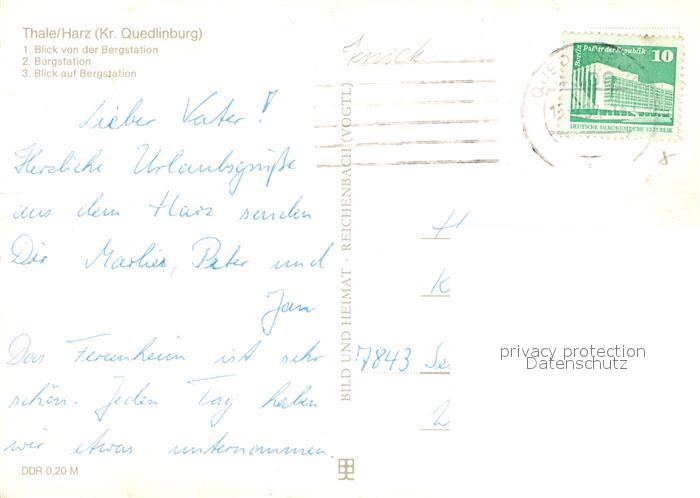 Thale/Harz (Kr. Quedlinburg)
1. Blick von der Bergstation
2. Bergstation
3. Blick auf Bergstation
Lieber Vater!
Herzliche Urlaubsgrüße
aus dem Harz senden
Dir Marlies, Peter und
Jan
Das Ferienheim ist sehr
schön. Jeden Tag haben
wir etwas unternommen.
DDR 0,20 M
BILD UND HEIMAT · REICHENBACH (VOGTL)
Knick
QUED
Berlin Palast der Republik 10
DEUTSCHE DEMOKRATISCHE REPUBLIK
8
H
K
7843 Se
privacy protection
Datenschutz